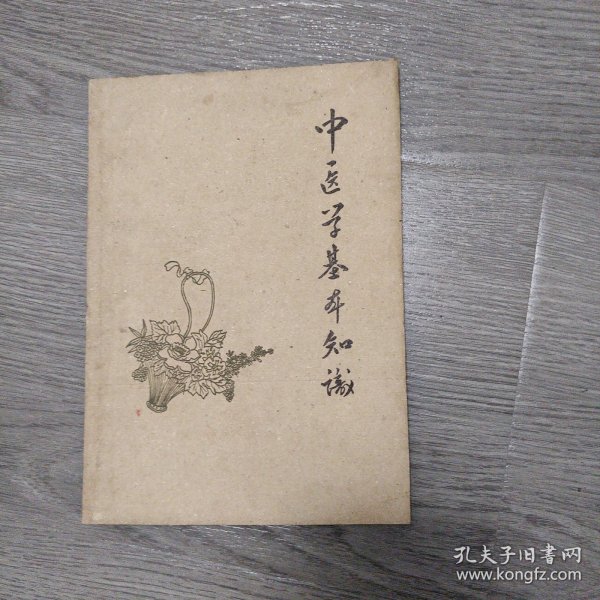 中医学基本知識
孔夫子旧书网
www.kongfz.com